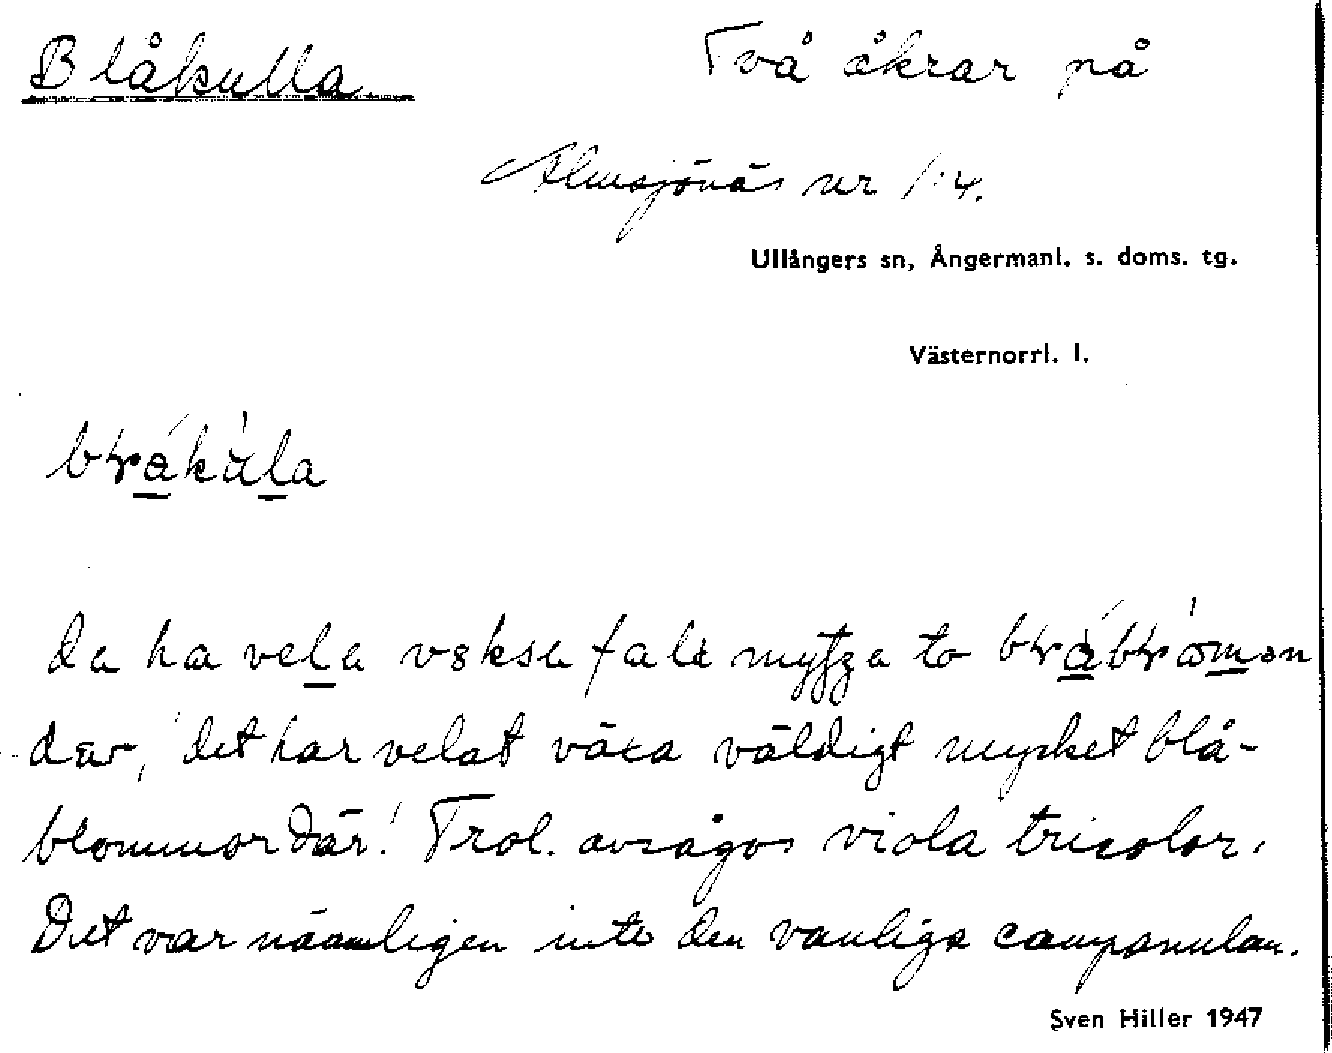 Blåkulla. Två åkrar på
Almsjönäs nr 1:4.
Ullångers sn, Ångermanl. s. doms. tg.
Västernorrl. l.
da ha vela to
där, det har velat växa väldigt mycket blå-
blommor där! Trol. avsågos viola tricolor.
Det var näamligen inte den vanliga campanulan.
Sven Hiller 1947